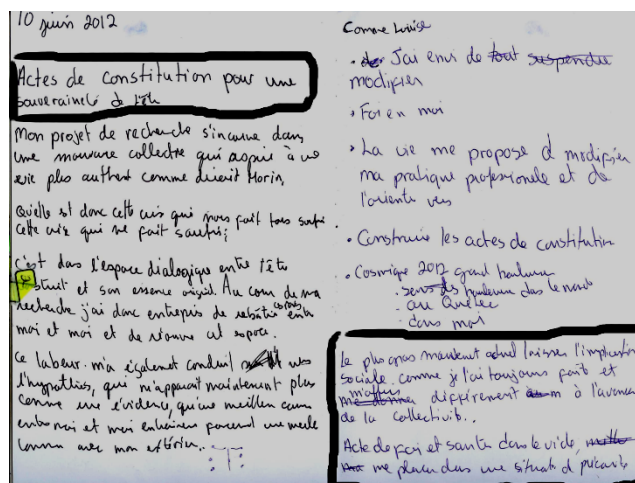 10 juin 2012
Actes de constitution pour une
souveraineté de l'être
Mon projet de recherche s'incarne dans
une mouvance collective qui aspire à une
vie plus comme dirait Morin,
Quelle est donc cette crise qui nous fait tous
cette crise qui me fait souffrir;
c'est dans l'espace dialogique entre l'être
et son essence Au cours de ma
recherche j'ai donc entrepris de rebâtir entre
moi et moi et de cet espace.
Ce labeur m'a également conduit vers
l'hypothèse, qui m'apparait maintenant plus
comme une évidence, qu'une meilleure
entre moi et moi une meilleure
avec mon extérieur.
Comme Louise
• J'ai envi de tout suspendre
modifier
• Foi en moi
• La vie me propose d modifier
ma pratique profesionele et de
l'oriente vers
• Construire les actes de constitution
• Cosmique 2012 grand
dans le monde
au Québec
dans moi
Le plus laisser l'implication
sociale comme je l'ai toujours fait et
différemment à l'avancé
de la collectivité..
Acte de foi et sauter dans le vide,
me placer dans une situation d précarité